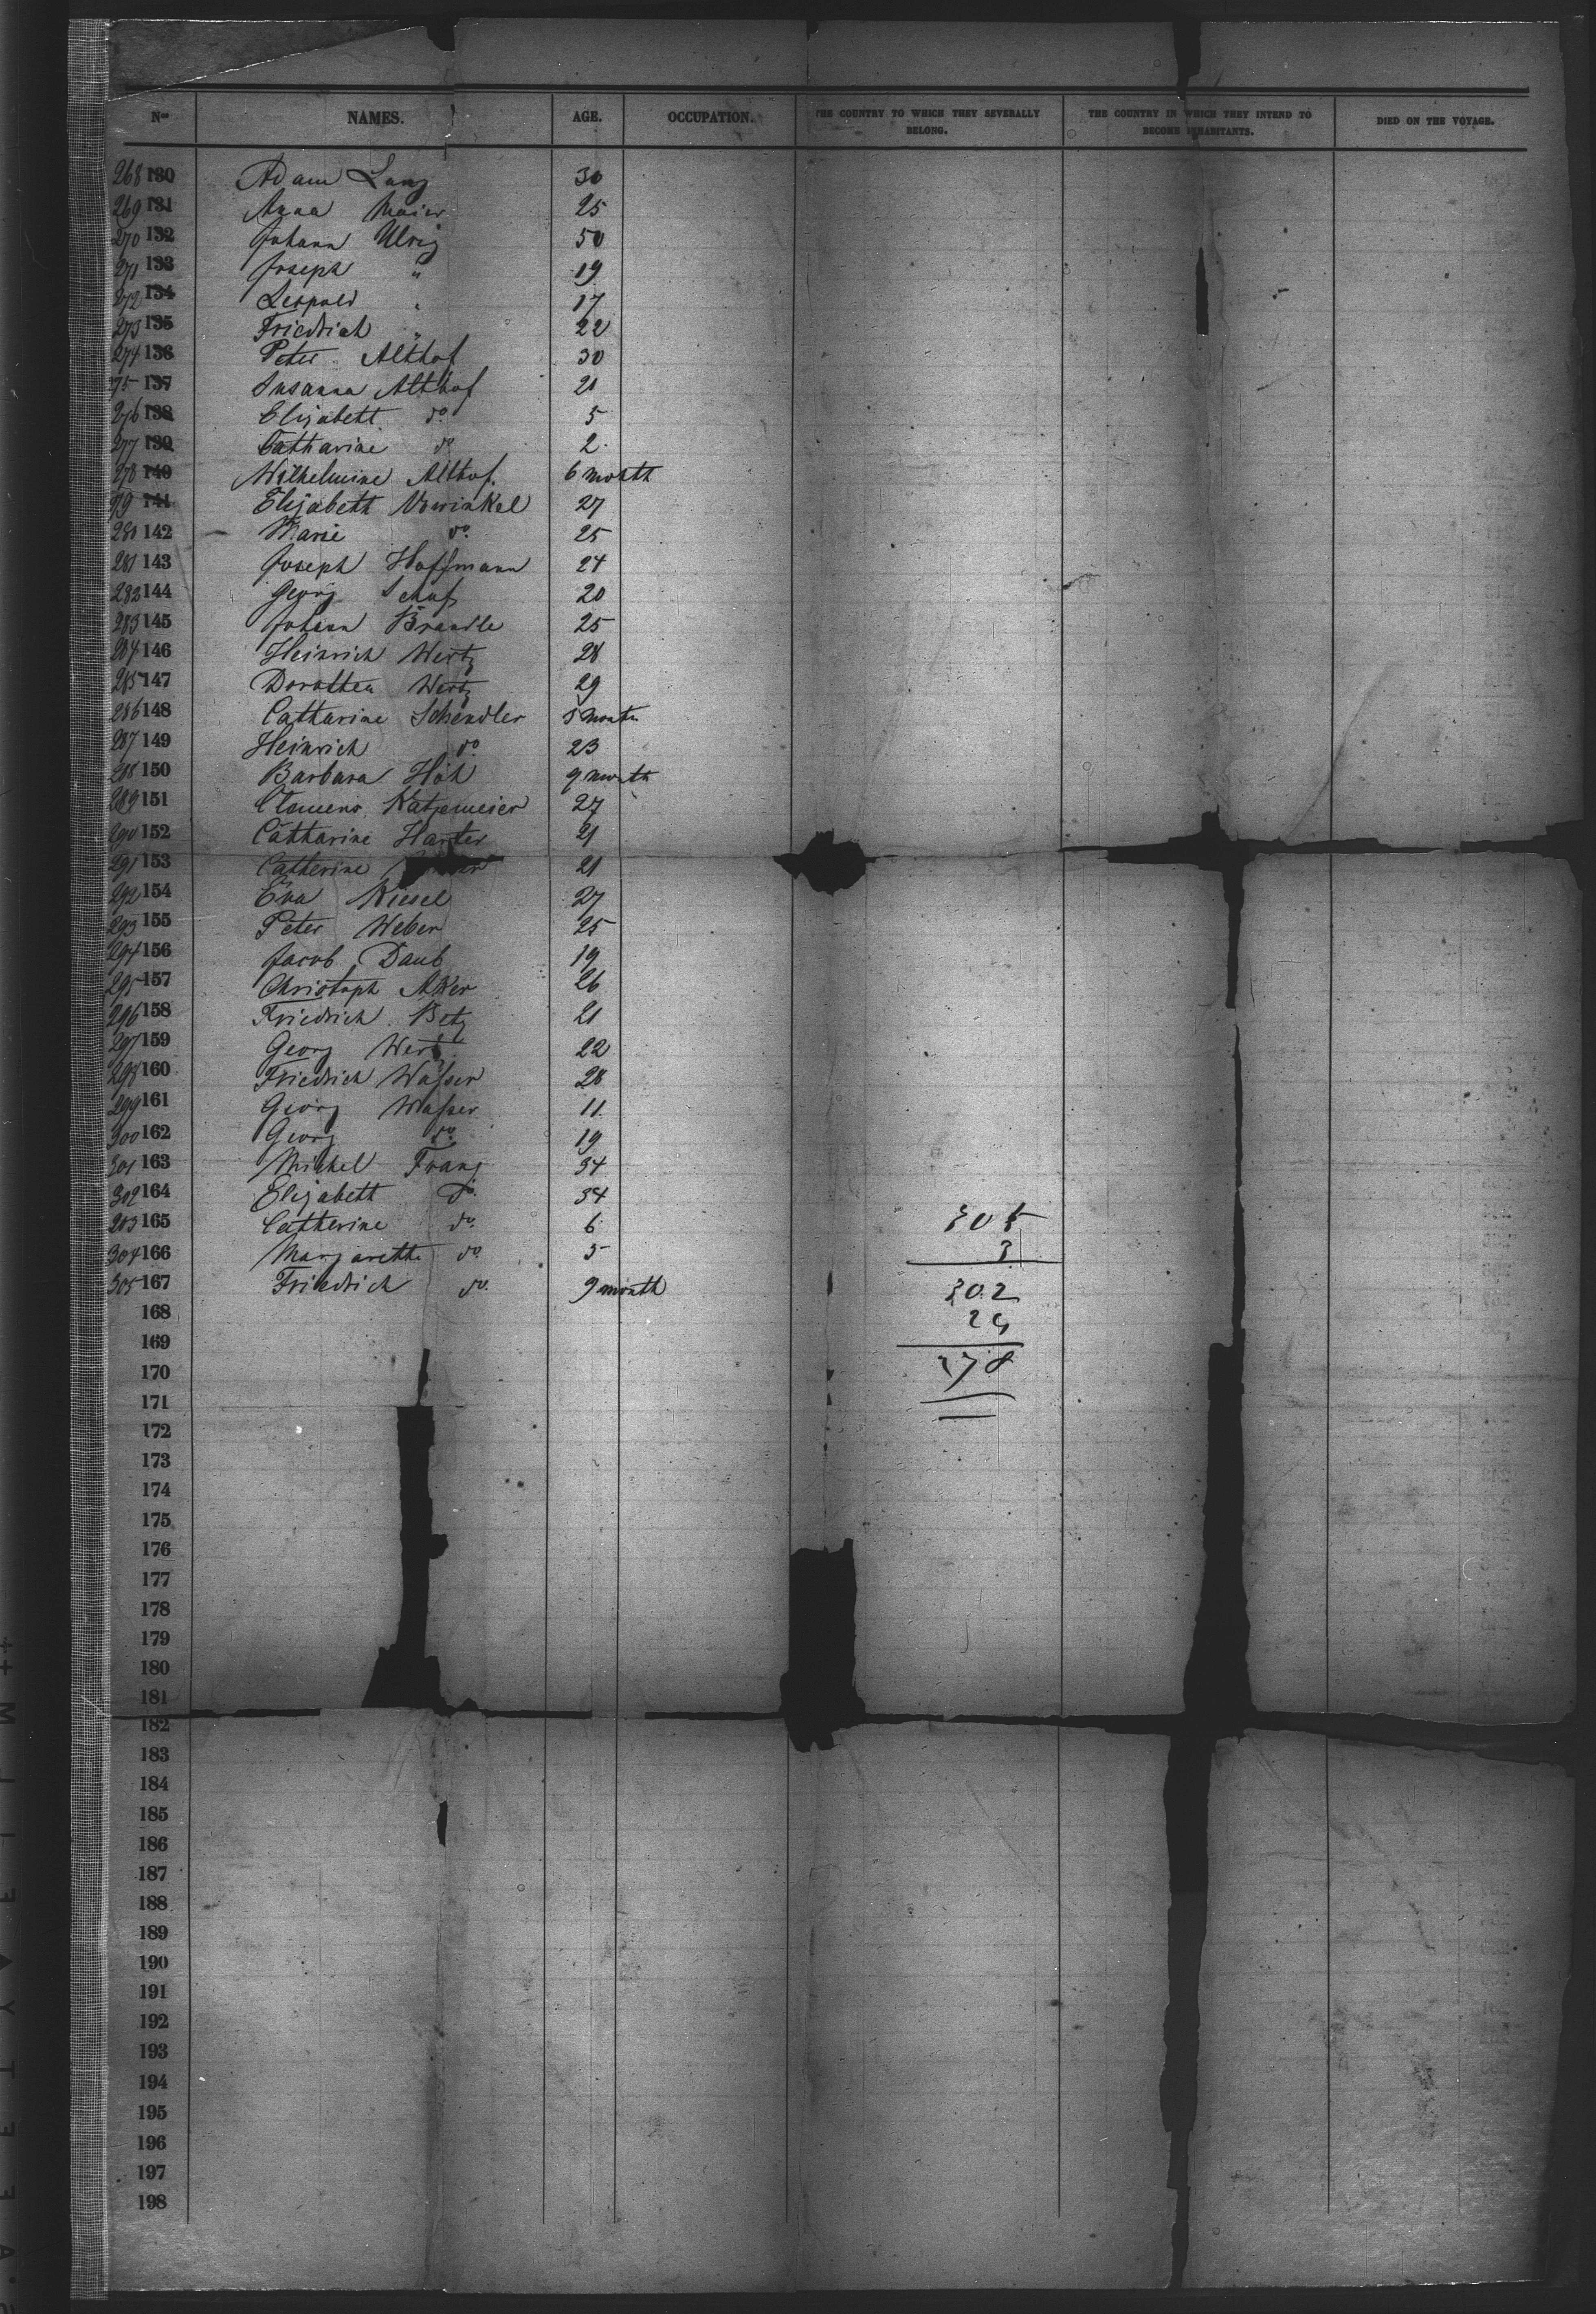 Nos NAMES. AGE. OCCUPATION. THE COUNTRY TO WHICH THEY SEVERALLY BELONG. THE COUNTRY IN WHICH THEY INTEND TO BECOME INHABITANTS. DIED ON THE VOYAGE.
268 130 Adam Lang 30
269 131 Anna Maier 25
270 132 Johann Ulrig 50
271 133 Joseph " 19
272 134 Leopold " 17
273 135 Friedrich " 22
274 136 Peter Althof 30
275 137 Susanna Althof 21
276 138 Elisabett do 5
277 139 Catharine do 2
278 140 Wilhelmine Althof. 6 month
279 141 Elisabett Vowinkel 27
280 142 Marie do. 25
281 143 Joseph Hoffmann 24
282 144 Georg Schaf 20
283 145 Johann Brandle 25
284 146 Heinrich Wertz 28
285 147 Dorothea Wertz 29
286 148 Catharine Schendler 8 month
287 149 Heinrich do 23
288 150 Barbara Höh 9 month
289 151 Clemens Katzemeier 27
290 152 Catharine Harter 21
291 153 Catherine 21
292 154 Eva Kiesel 27
293 155 Peter Weber 25
294 156 Jacob Daub 19
295 157 Christoph Aker 26
296 158 Friedrich Betz 21
297 159 Georg 22
298 160 Friedrich Wasser 28
299 161 Georg Wasser 11
300 162 Georg do 19
301 163 Michel Franz 34
302 164 Elisabett do. 34
303 165 Catherine do. 6
304 166 Margarethe do. 5
305 167 Friedrich do. 9 month
305
3
302
24
278
168
169
170
171
172
173
174
175
176
177
178
179
180
181
182
183
184
185
186
187
188
189
190
191
192
193
194
195
196
197
198